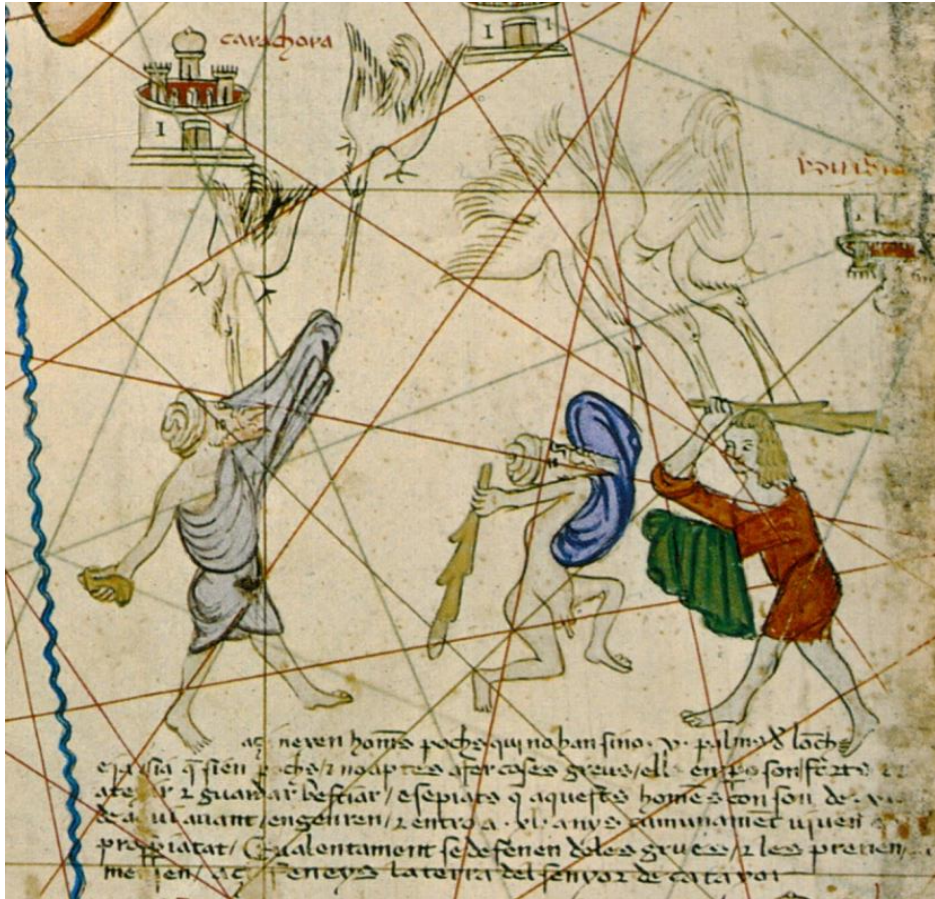 carachora
açi nexen homes pochs qui no han sino .v. palms d lonch
e ja sia q sien pochs / r no aptes a fer coses greus / ells enpo son forts
a texir r guardar bestiar / e sepiats q aquests homes con son de .x
de aqui avant / engenren / r entro a .xl. anys comunament viven
propiatat / valentament se defenen d les grues / r les prenen /
menjen / açi feneys la terra del senyor de catayo